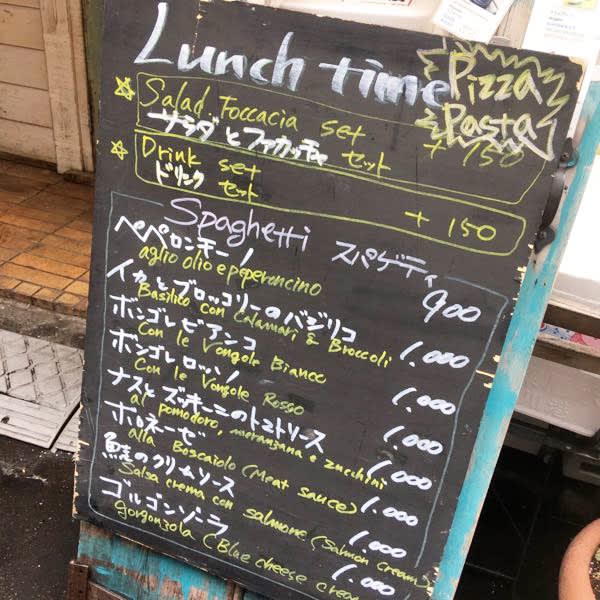 Lunch time
Pizza
Pasta
Salad Foccacia set + 150
サラダ と フォカッチャ セット
Drink set
ドリンク セット + 150
Spaghetti スパゲティ
ペペロンチーノ
aglio olio e peperoncino 900
イカとブロッコリーのバジリコ
Basilico con Calamari & Broccoli 1.000
ボンゴレ ビアンコ
Con le Vongole Bianco 1.000
ボンゴレ ロッソ
Con le Vongole Rosso 1.000
ナスとズッキーニのトマトソース
al pomodoro, meranzana e zucchini 1.000
ボロネーゼ
alla Boscaiolo (Meat sauce) 1.000
鮭のクリームソース
Salsa crema con salmone (Salmon cream) 1.000
ゴルゴンゾーラ
gorgonzola (Blue cheese cream 1.000